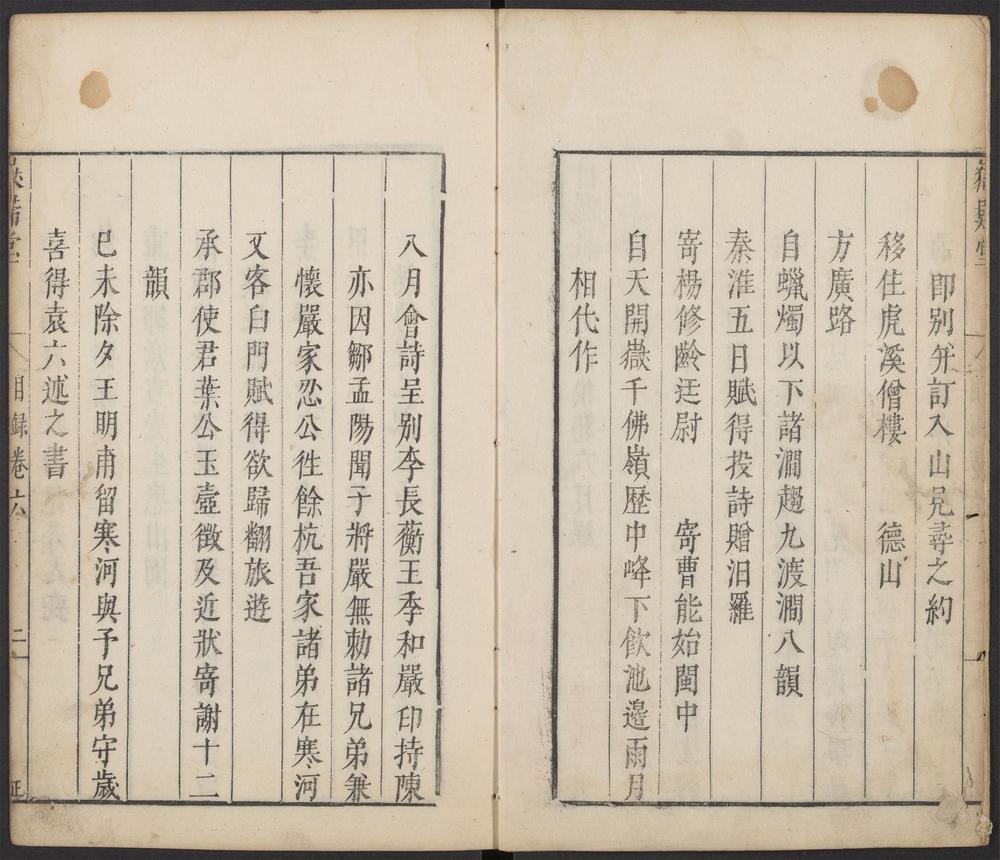 即别并訂入山見尋之約
移住虎溪僧樓　德山
方廣路
自蠟燭以下諸澗趨九渡澗八韻
秦淮五日賦得投詩贈汨羅
寄楊修齡廷尉　寄曹能始閩中
自天開嶽千佛嶺歷中峰下飲池邊雨月
相代作
八月會詩呈别李長蘅王季和嚴印持陳
亦因鄒孟陽聞子將嚴無勑諸兄弟兼
懷嚴家忍公徃餘杭吾家諸弟在寒河
又客白門賦得欲歸翻旅遊
承郡使君葉公玉壺徵及近狀寄謝十二
韻
巳未除夕王明甫留寒河與予兄弟守歲
喜得袁六述之書
目録卷六
二